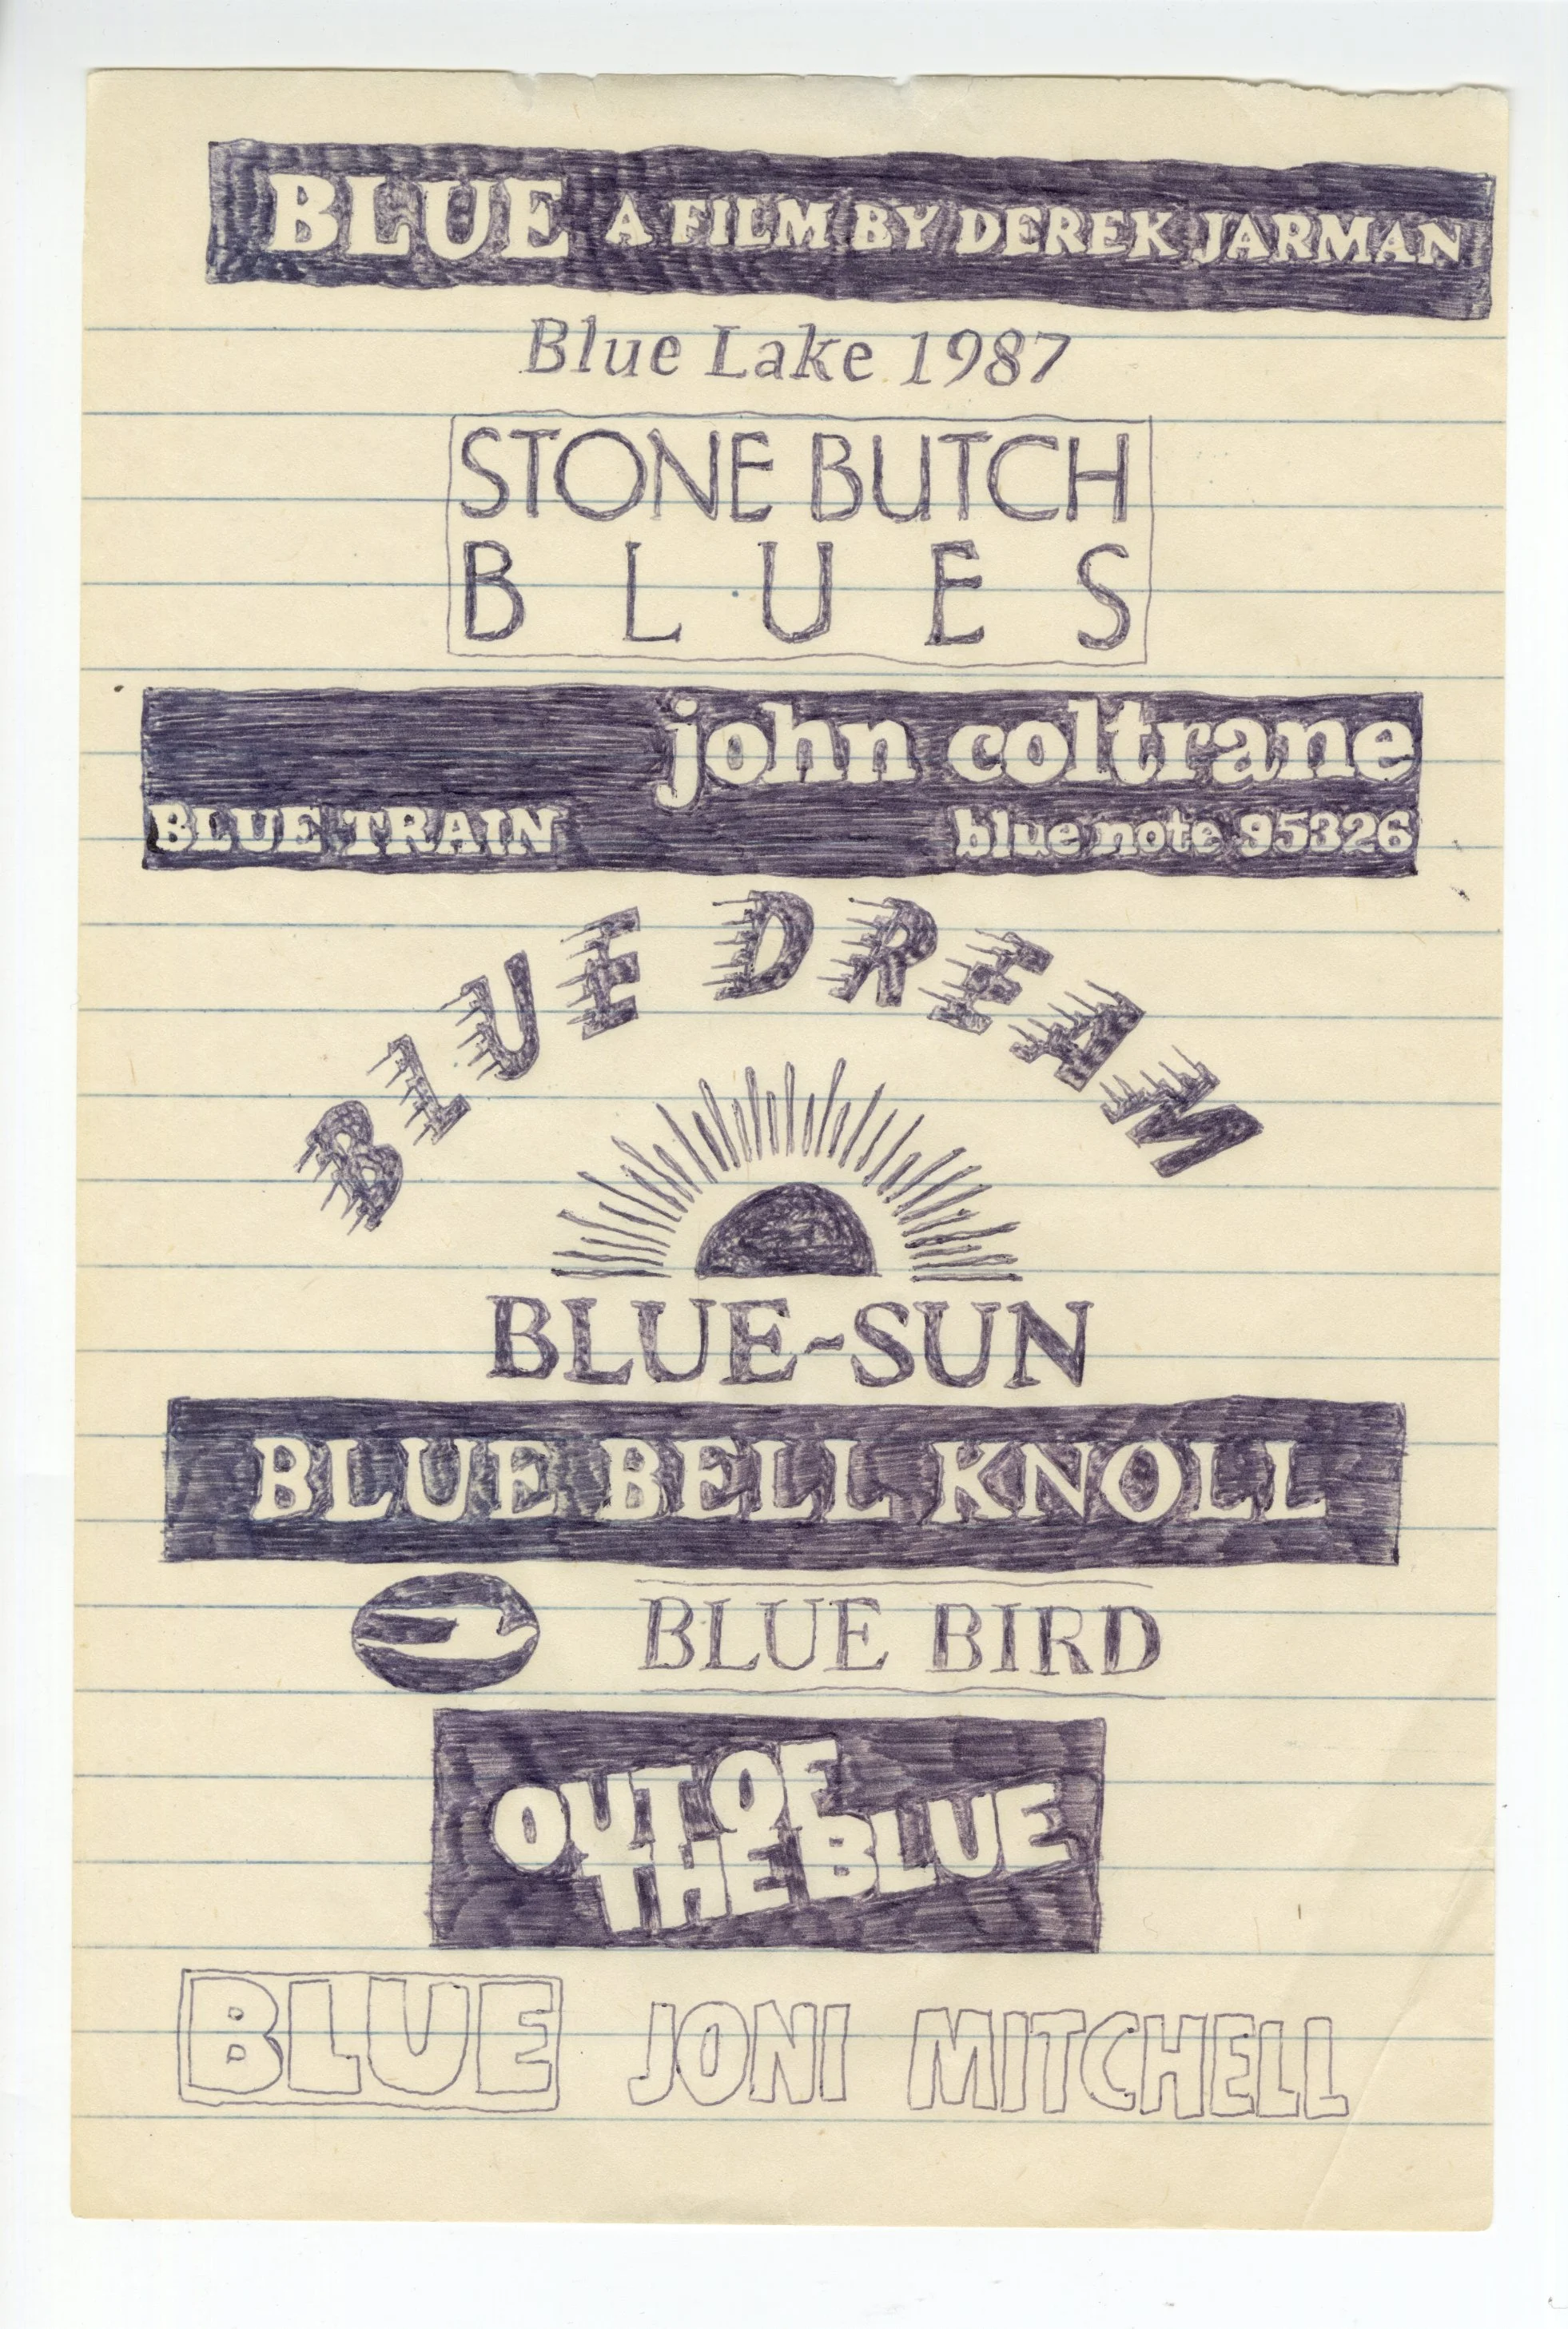 BLUE A FILM BY DEREK JARMAN
Blue Lake 1987
STONE BUTCH
BLUES
john coltrane
BLUE TRAIN blue note 95326
BLUE DREAM
BLUE-SUN
BLUE BELL KNOLL
BLUE BIRD
OUT OF
THE BLUE
BLUE JONI MITCHELL